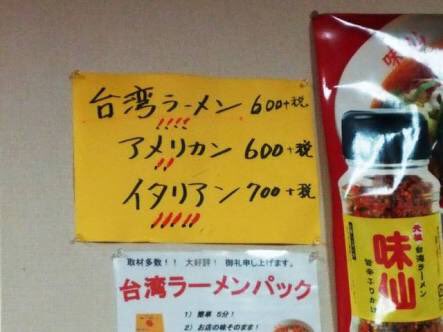 台湾ラーメン 600+税
!!!!
アメリカン 600+税
!!
イタリアン 700+税
!!!!!
取材多数！！ 大好評！ 御礼申し上げます。
台湾ラーメンパック
1) 簡単 5分！
2) お店の味そのまま！
味仙
台湾ラーメン
味仙
旨辛ふりかけ